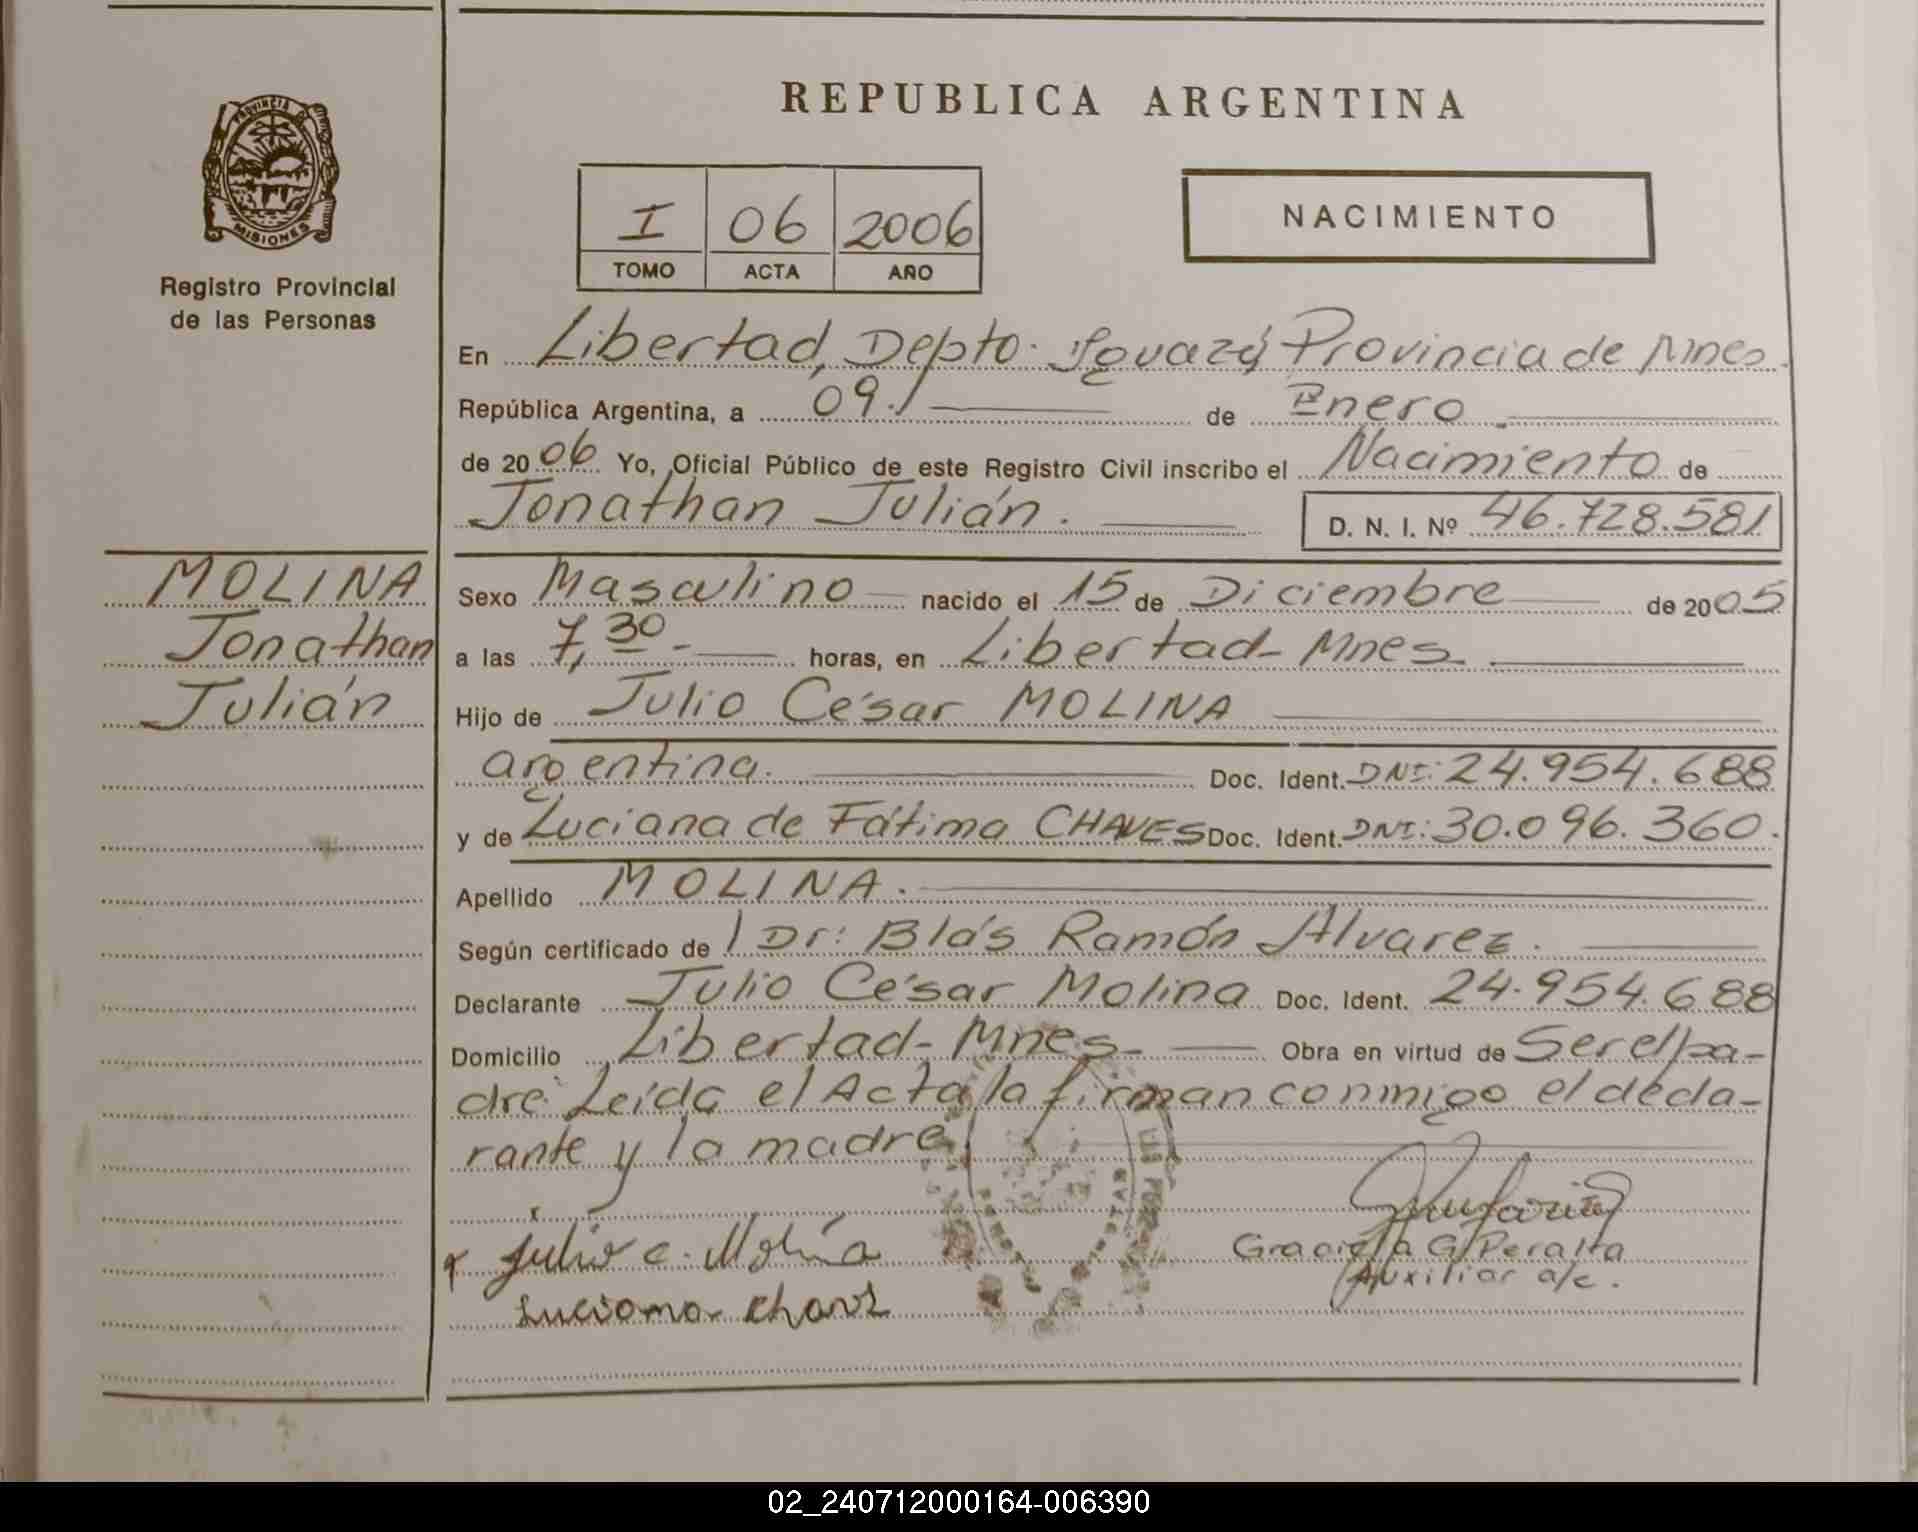 REPUBLICA ARGENTINA
PROVINCIA DE
MISIONES
Registro Provincial
de las Personas
I 06 2006
TOMO ACTA AÑO
NACIMIENTO
En Libertad, Depto. Iguazú Provincia de Mnes.
República Argentina, a 09./ de Enero
de 2006 Yo, Oficial Público de este Registro Civil inscribo el Nacimiento de
Jonathan Julián. D. N. I. Nº 46.728.581
MOLINA
Jonathan
Julián
Sexo Masculino nacido el 15 de Diciembre de 2005
a las 7,30 horas, en Libertad - Mnes
Hijo de Julio César MOLINA
argentina. Doc. Ident. DNI: 24.954.688
y de Luciana de Fátima CHAVES Doc. Ident. DNI: 30.096.360.
Apellido MOLINA.
Según certificado de l Dr: Blás Ramón Alvarez.
Declarante Julio César Molina Doc. Ident. 24.954.688
Domicilio Libertad - Mnes - Obra en virtud de Ser el pa-
dre. Leída el Acta la firman conmigo el decla-
rante y la madre.
Julio C. Molina
Luciana Chavez
Graciela G. Peralta
Auxiliar a/c.
02_240712000164-006390